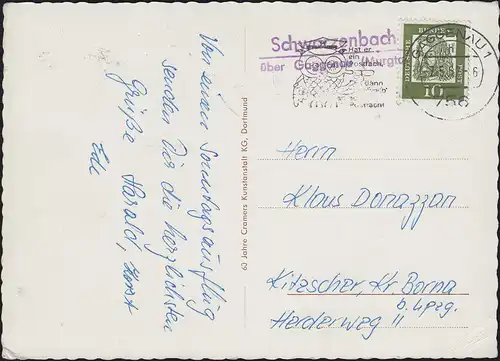 Von einem Sonntagsausflug
senden Dir die herzlichsten
Grüße Harald, Horst
60 Jahre Cramers Kunstanstalt KG, Dortmund
Schwarzenbach
über Gaggenau (Murgtal)
Hat er
ein
dann
GGENAU 1
756
10
Herrn
Klaus Donazzan
Kitzscher, Kr Borna
b. Lpzg.
Herderweg 11